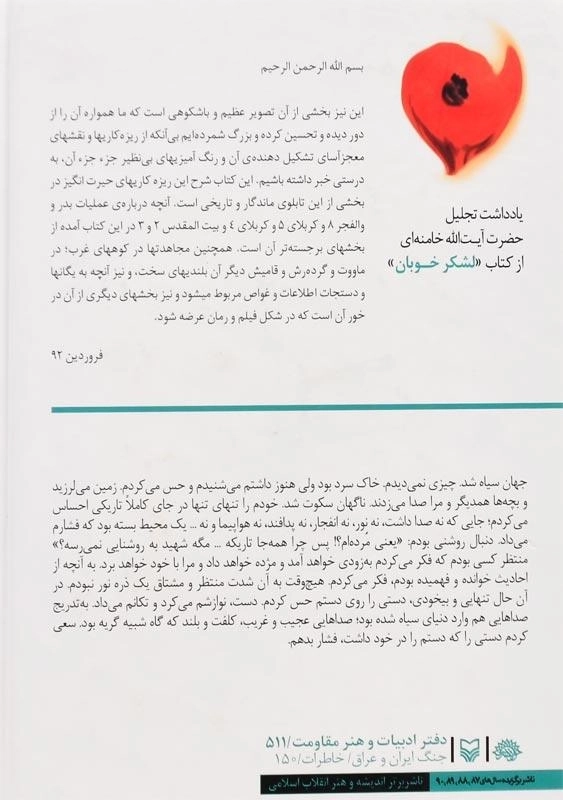 بسم الله الرحمن الرحیم
این نیز بخشی از آن تصویر عظیم و باشکوهی است که ما همواره آن را از
دور دیده و تحسین کرده و بزرگ شمرده‌ایم بی‌آنکه از ریزه‌کاریها و نقشهای
معجزآسای تشکیل دهنده‌ی آن و رنگ آمیزیهای بی‌نظیر جزء جزء آن، به
درستی خبر داشته باشیم. این کتاب شرح این ریزه کاریهای حیرت انگیز در
بخشی از این تابلوی ماندگار و تاریخی است. آنچه درباره‌ی عملیات بدر و
والفجر ۸ و کربلای ۵ و کربلای ۴ و بیت المقدس ۲ و ۳ در این کتاب آمده از
بخشهای برجسته‌تر آن است. همچنین مجاهدتها در کوههای غرب؛ در
ماووت و گرده‌رش و قامیش دیگر آن بلندیهای سخت، و نیز آنچه به یگانها
و دستجات اطلاعات و غواص مربوط میشود و نیز بخشهای دیگری از آن در
خور آن است که در شکل فیلم و رمان عرضه شود.
فروردین ۹۲
یادداشت تجلیل
حضرت آیـت‌الله خامنه‌ای
از کتاب «لشکر خـوبان»
جهان سیاه شد. چیزی نمی‌دیدم. خاک سرد بود ولی هنوز داشتم می‌شنیدم و حس می‌کردم. زمین می‌لرزید
و بچه‌ها همدیگر و مرا صدا می‌زدند. ناگهان سکوت شد. خودم را تنهای تنها در جای کاملاً تاریکی احساس
می‌کردم؛ جایی که نه صدا داشت، نه نور، نه انفجار، نه پدافند، نه هواپیما و نه ... یک محیط بسته بود که فشارم
می‌داد. دنبال روشنی بودم: «یعنی مُرده‌ام؟! پس چرا همه‌جا تاریکه ... مگه شهید به روشنایی نمی‌رسه؟»
منتظر کسی بودم که فکر می‌کردم به‌زودی خواهد آمد و مژده خواهد داد و مرا با خود خواهد برد. به آنچه از
احادیث خوانده و فهمیده بودم، فکر می‌کردم. هیچ‌وقت به آن شدت منتظر و مشتاق یک ذره نور نبودم. در
آن حال تنهایی و بیخودی، دستی را روی دستم حس کردم. دست، نوازشم می‌کرد و تکانم می‌داد. به‌تدریج
صداهایی هم وارد دنیای سیاه شده بود؛ صداهایی عجیب و غریب، کلفت و بلند که گاه شبیه گریه بود. سعی
کردم دستی را که دستم را در خود داشت، فشار بدهم.
دفتر ادبیات و هنر مقاومت/۵۱۱
جنگ ایران و عراق/ خاطرات/۱۵۰
ناشر برگزیده سال‌های ۸۷، ۸۸، ۸۹، ۹۰
ناشر برتر اندیشه و هنر انقلاب اسلامی